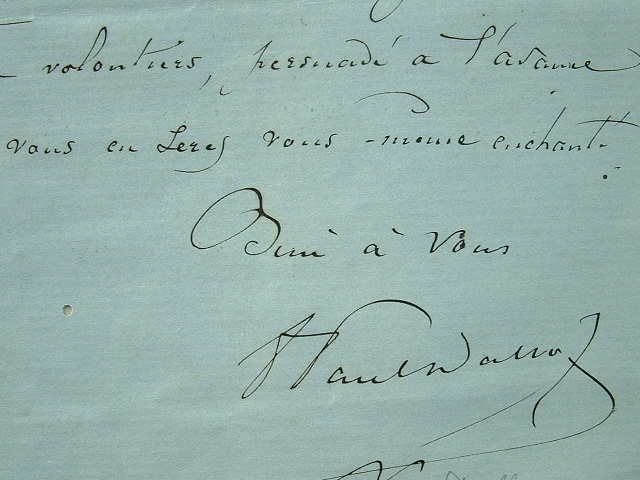 volontiers, persuadé a l'avance
vous en serez vous-même enchanté.
Bien à vous